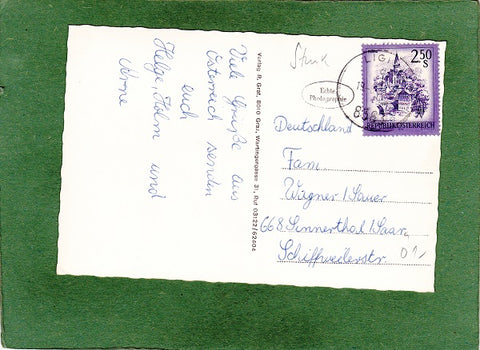 Viele Grüße aus
Österreich senden
euch
Helga, Holm und
Verlag R. Graf, 8010 Graz, Wartingergasse 31, Ruf 03122/62404
Echte
Photographie
LIG
2.50
S
REPUBLIK ÖSTERREICH
Deutschland
Fam.
Wagner / Sauer
668 Sinnerthal / Saar
Schiffweilerstr.